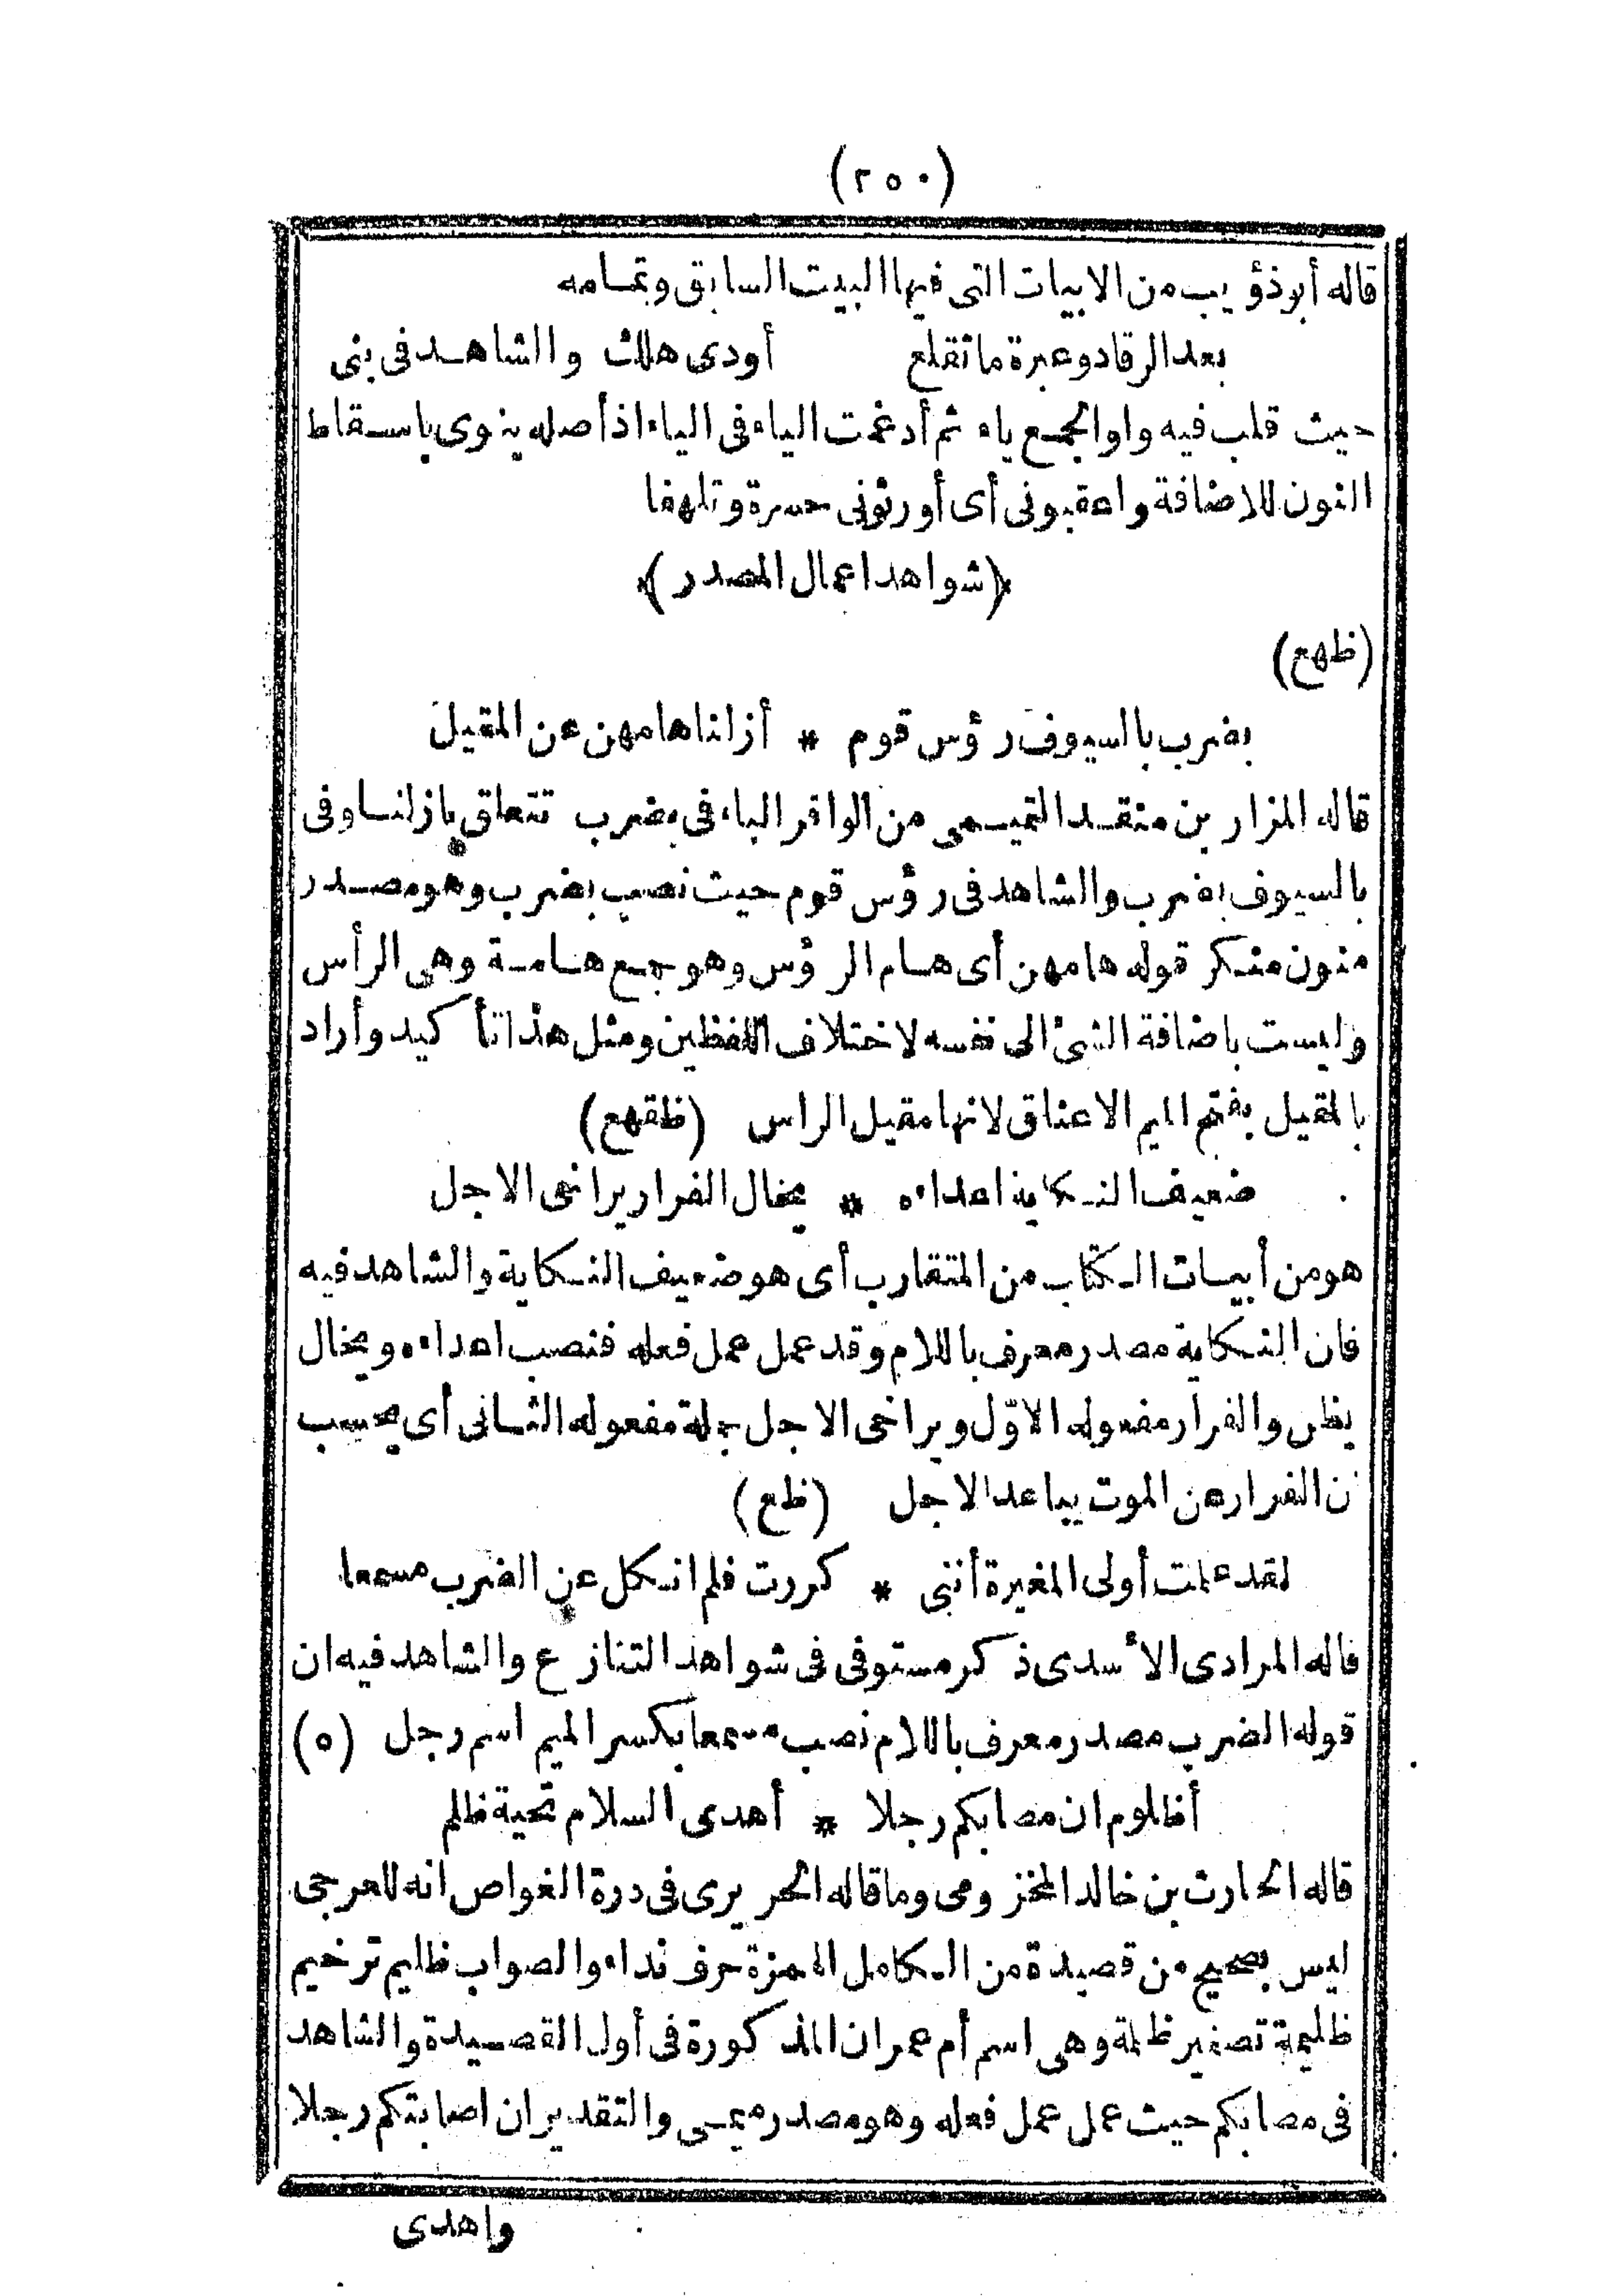 (٢٥٠)
قاله أبو ذؤيب من الابيات التى فيها البيت السابق وتمامه
بعد الرقاد وعبرة ما تقلع أودى هلك والشاهد فى بنى
حيث قلب فيه واو الجمع ياء ثم أدغمت الياء فى الياء اذ أصله بنوى باسقاط
النون للاضافة واعقبونى أى أورثونى حسرة وتلهفا
﴿شواهد اعمال المصدر﴾
(ظهع)
بضرب بالسيوف رؤس قوم * أزلنا هامهن عن المقيل
قاله المزار بن منقد التميمى من الوافر الباء فى بضرب تتعلق بازلنا وفى
بالسيوف بضرب والشاهد فى رؤس قوم حيث نصب بضرب وهو مصدر
منون منكر قوله هامهن أى هام الرؤس وهو جمع هامة وهى الرأس
وليست باضافة الشئ الى نفسه لاختلاف اللفظين ومثل هذا تأكيد وأراد
بالمقيل بفتح الميم الاعناق لانها مقيل الراس (ظقهع)
ضعيف النكاية اعداءه * يخال الفرار يراخى الاجل
هو من أبيات الكتاب من المتقارب أى هو ضعيف النكاية والشاهد فيه
فان النكاية مصدر معرف باللام وقد عمل عمل فعله فنصب اعداءه ويخال
يظن والفرار مفعوله الاوّل ويراخى الاجل جملة مفعوله الثانى أى يحسب
ن الفرار عن الموت يباعد الاجل (ظع)
لقد علمت أولى المغيرة أننى * كررت فلم انكل عن الضرب مسمعا
قاله المرادى الأسدى ذكر مستوفى فى شواهد التنازع والشاهد فيه ان
قوله الضرب مصدر معرف باللام نصب مسمعا بكسر الميم اسم رجل (ه)
أظلوم ان مصابكم رجلا * أهدى السلام تحية ظلم
قاله الحارث بن خالد المخزومى وما قاله الحريرى فى درة الغواص انه للعرجى
ليس بصحيح من قصيدة من الكامل الهمزة حرف نداء والصواب ظليم ترخيم
ظليمة تصغير ظلمة وهى اسم أم عمران المذكورة فى أول القصيدة والشاهد
فى مصابكم حيث عمل عمل فعله وهو مصدر ميمى والتقدير ان اصابتكم رجلا
واهدى